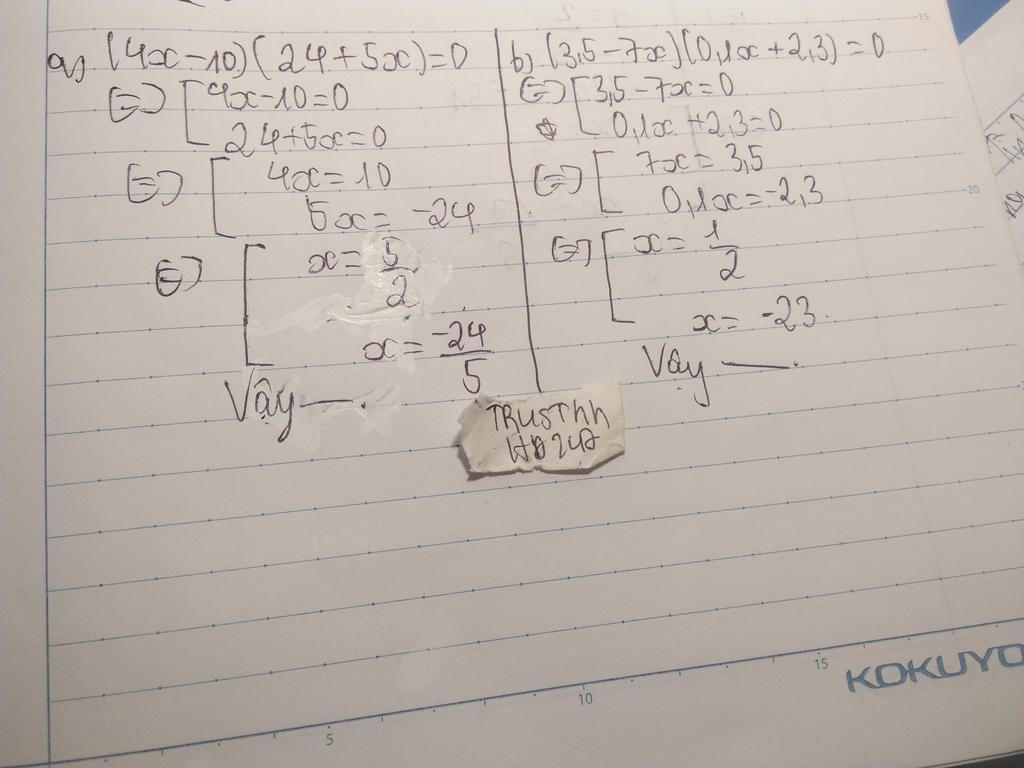 a, (4x-10)(24+5x)=0
⇔ [4x-10=0
24+5x=0
⇔ [4x=10
5x=-24
⇔ [x=5/2
x=-24/5
Vậy —.
b, (3,5-7x)(0,1x+2,3)=0
⇔ [3,5-7x=0
0,1x+2,3=0
⇔ [7x=3,5
0,1x=-2,3
⇔ [x=1/2
x=-23.
Vậy —.
15
20
5
10
15
KOKUYO